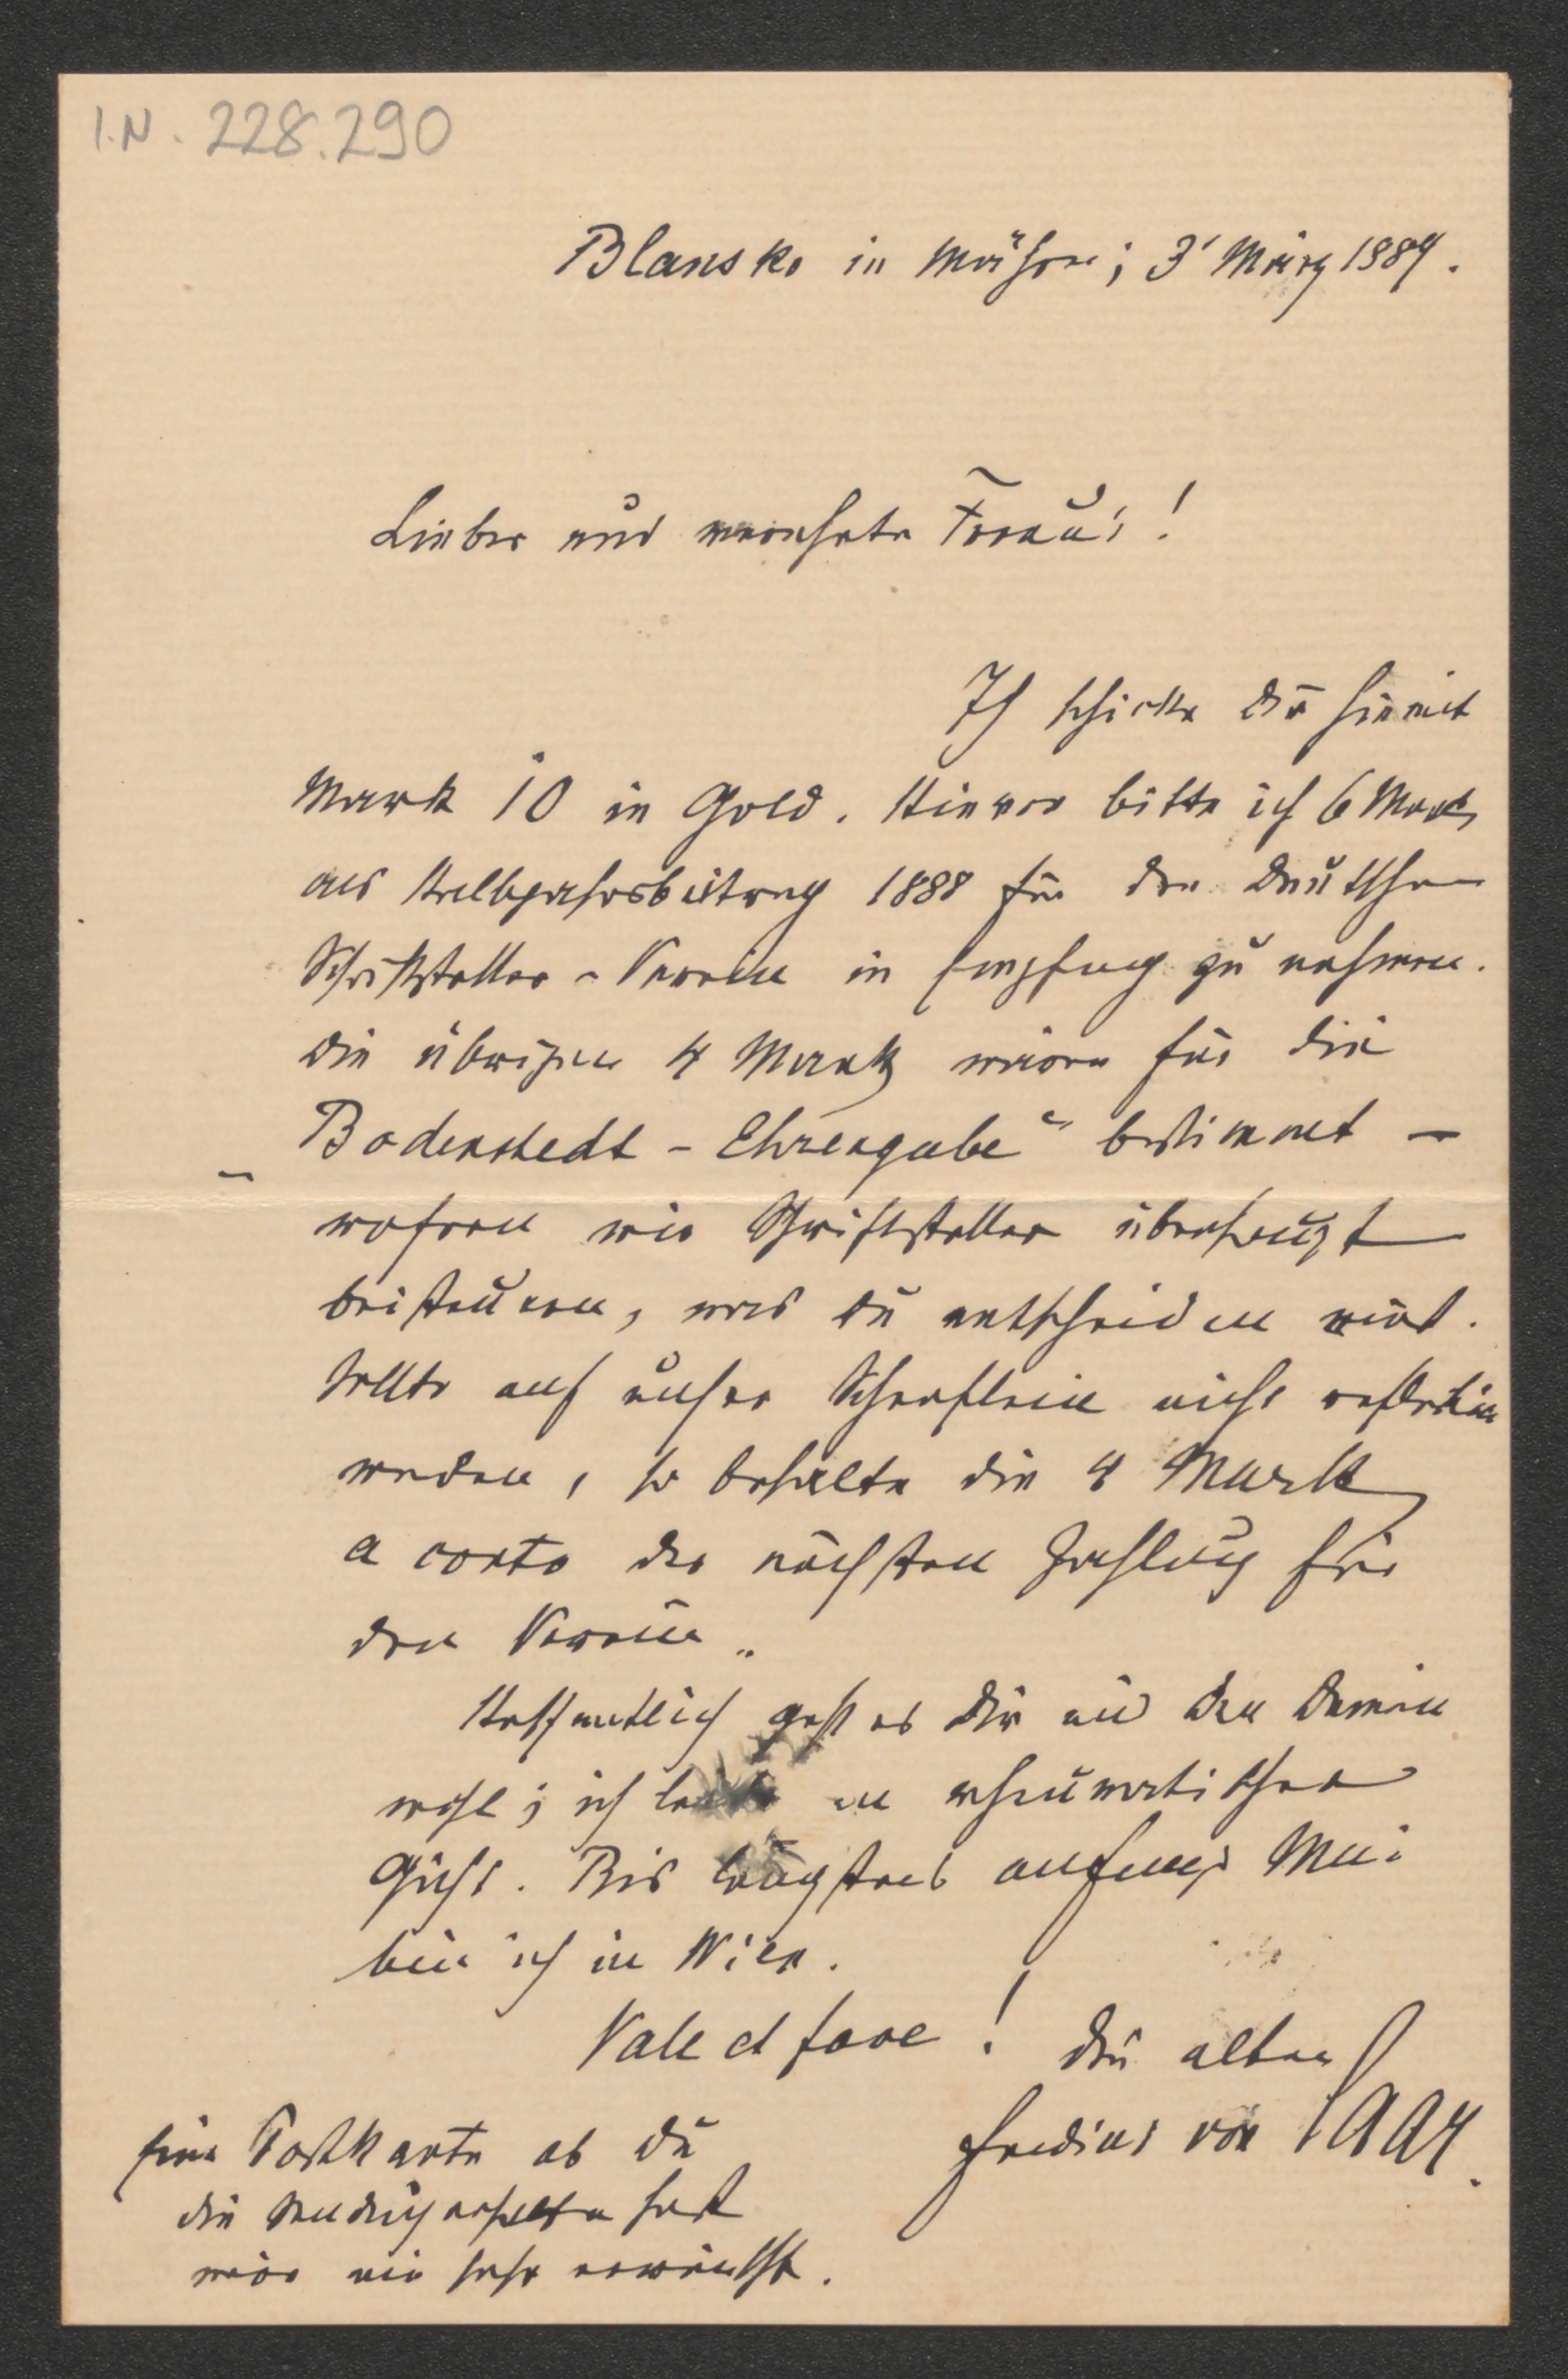 I.N. 228.290
Blansko in Mähren; 3' März 1889.
Lieber und verehrter Freund!
Ich schicke Dir hiemit
Mark 10 in Gold. Hievon bitte ich 6 Mark
als Halbjahrsbeitrag 1888 für den Deutschen
Schriftsteller-Verein in Empfang zu nehmen.
Die übrigen 4 Mark wären für die
„Bodenstedt-Ehrengabe“ bestimmt –
wofern wir Schriftsteller überhaupt
beisteuern, was Du entscheiden wirst.
Sollte auf unser Scherflein nicht reflectirt
werden, so behalte die 4 Mark
a conto der nächsten Zahlung für
den Verein.
Hoffentlich geht es Dir und den Deinen
wohl; ich leide an rheumatischer
Gicht. Bis längstens anfangs Mai
bin ich in Wien.
Vale et fave! Dein alter
Ferdinand von Saar.
Eine Postkarte ob Du
die Sendung erhalten hast
wäre mir sehr erwünscht.